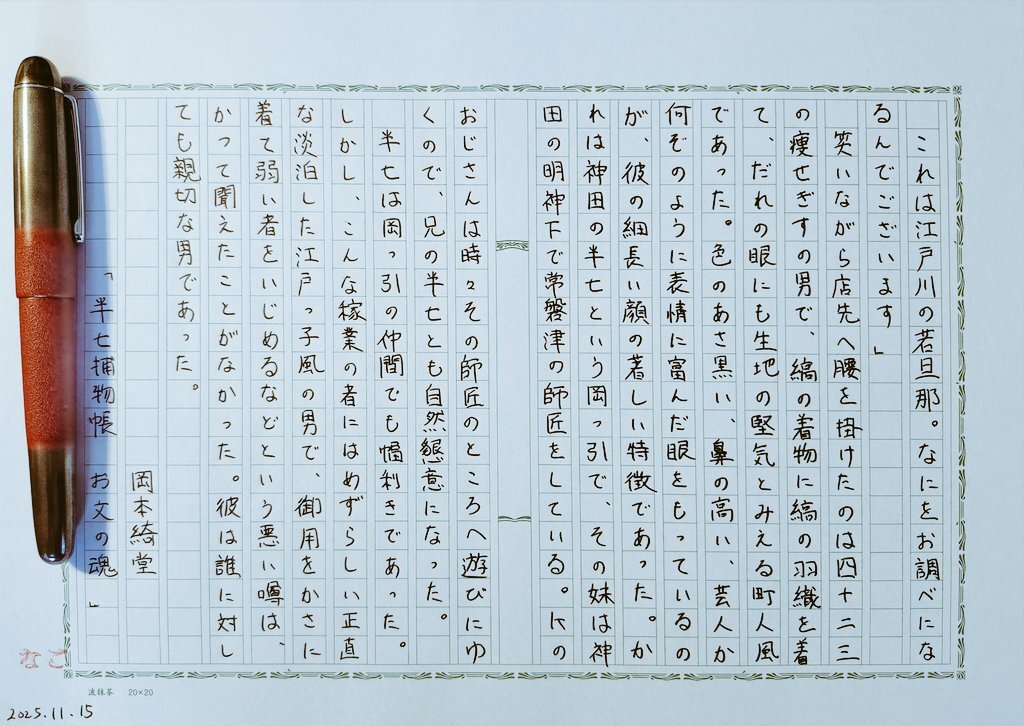 これは江戸川の若旦那。なにをお調べにな
るんでございます」
笑いながら店先へ腰を掛けたのは四十二三
の痩せぎすの男で、縞の着物に縞の羽織を着
て、だれの眼にも生地の堅気とみえる町人風
であった。色のあさ黒い、鼻の高い、芸人か
何ぞのように表情に富んだ眼をもっているの
が、彼の細長い顔の著しい特徴であった。か
れは神田の半七という岡っ引で、その妹は神
田の明神下で常磐津の師匠をしている。Kの
おじさんは時々その師匠のところへ遊びにゆ
くので、兄の半七とも自然懇意になった。
半七は岡っ引の仲間でも幅利きであった。
しかし、こんな稼業の者にはめずらしい正直
な淡泊した江戸っ子風の男で、御用をかさに
着て弱い者をいじめるなどという悪い噂は、
かつて聞えたことがなかった。彼は誰に対し
ても親切な男であった。
岡本綺堂
「半七捕物帳　お文の魂」
なご
波抹茶　20×20
2025.11.15